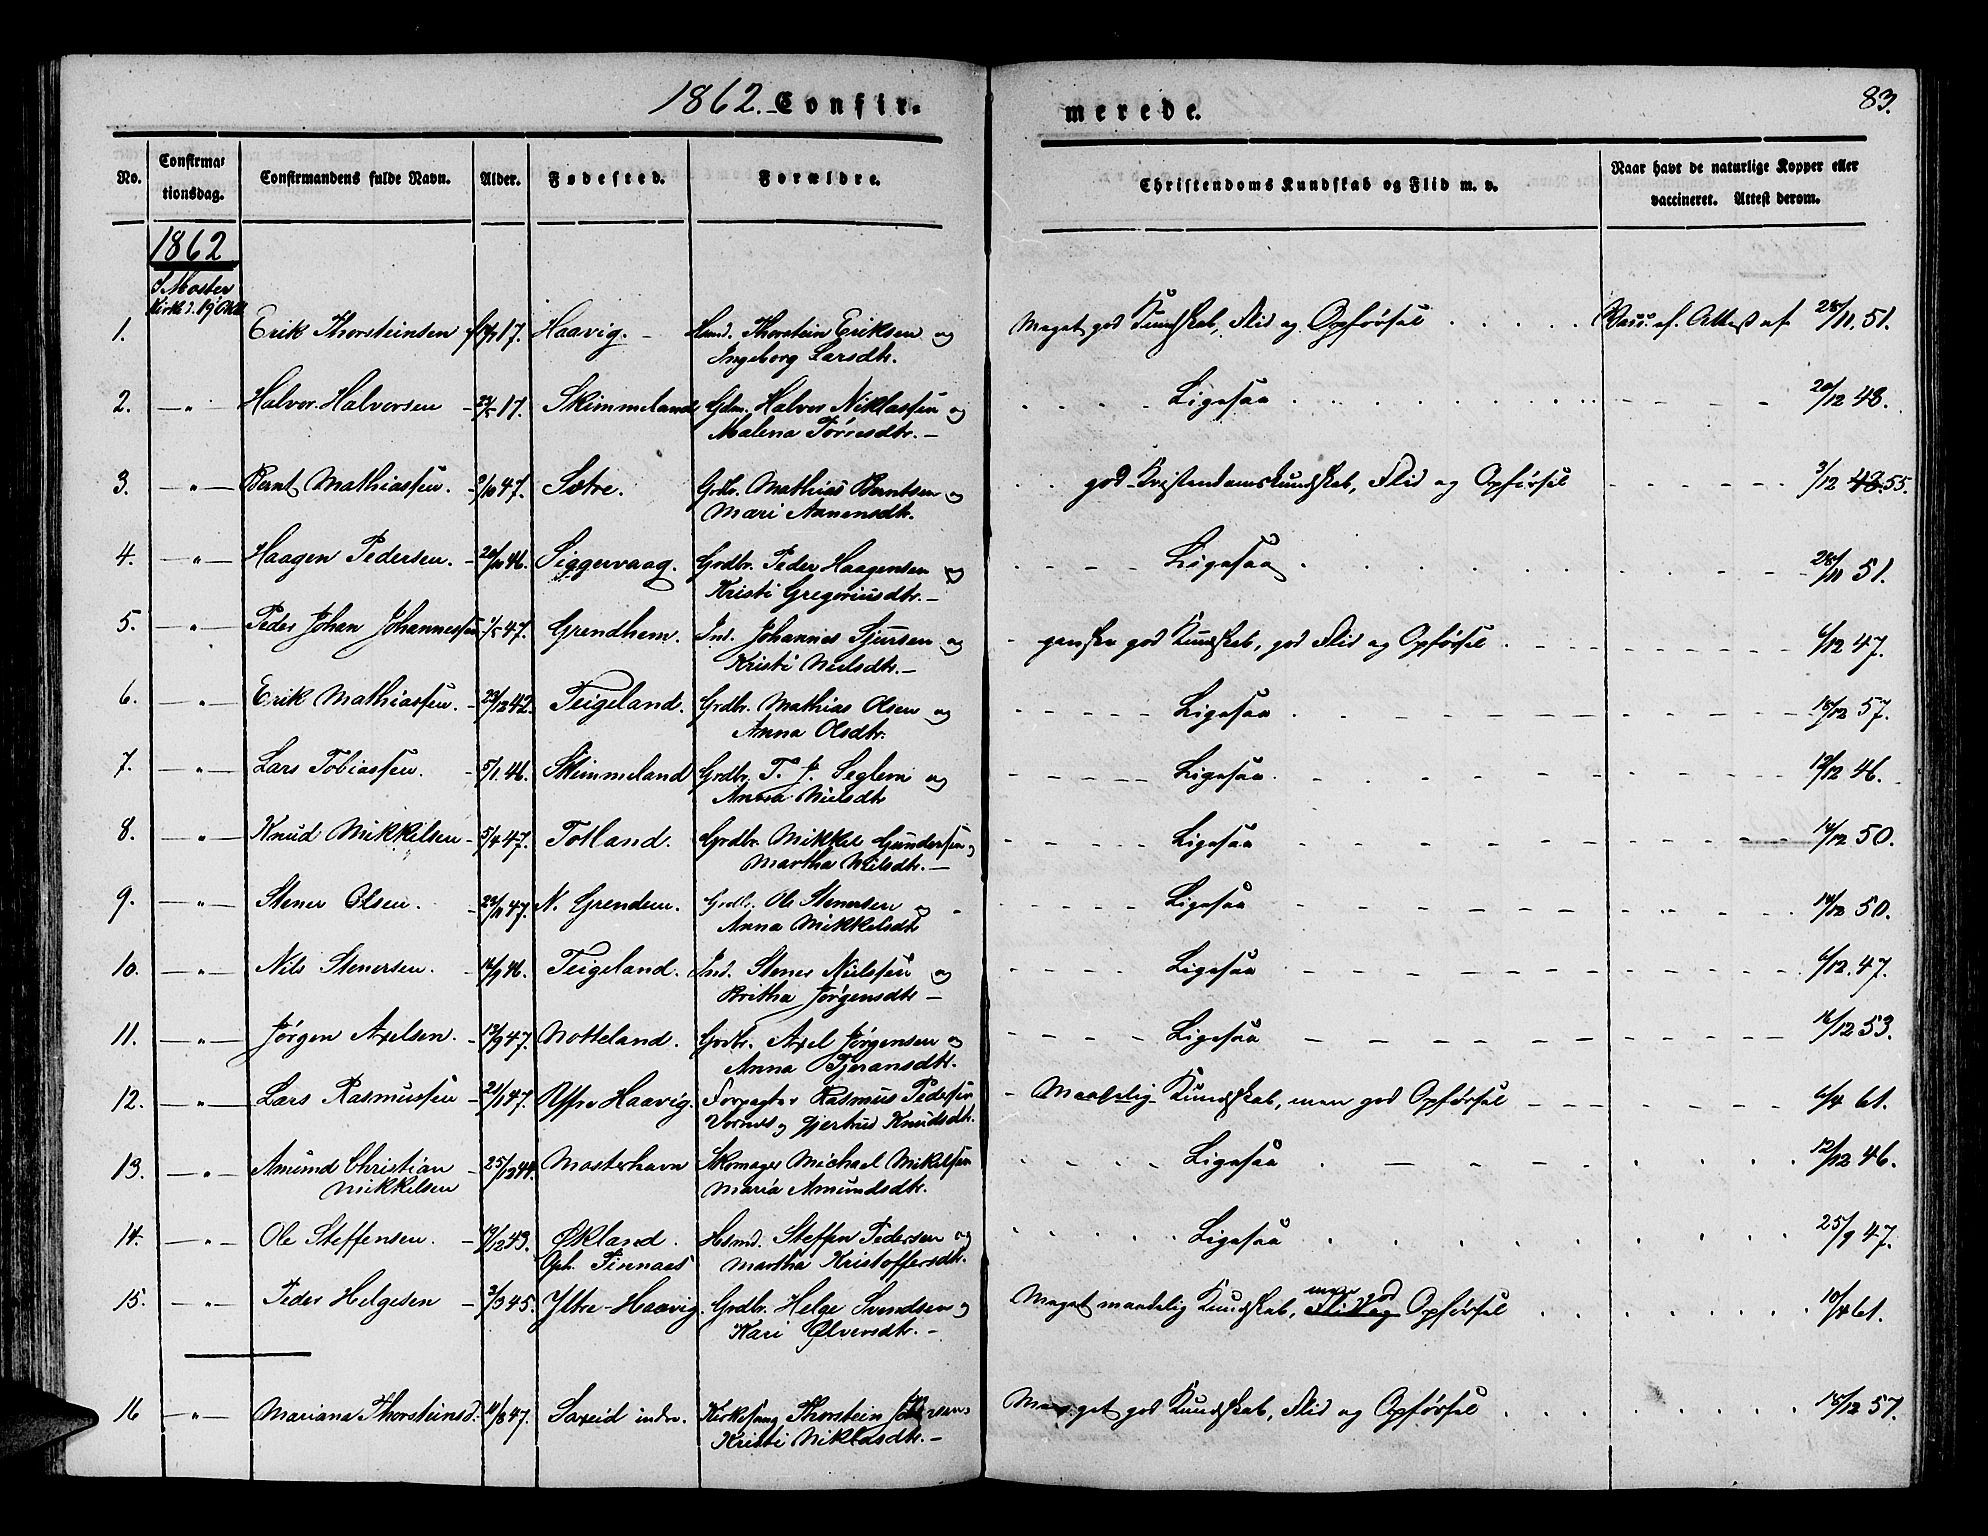 1862. Confir-
merede.
83.
No.
Confirma-
tionsdag.
Confirmandens fulde Navn.
Alder.
Fødested.
Forældre.
Christendoms Kundskab og Flid m. v.
Naar havt de naturlige Kopper eller
vaccineret. Attest derom.
1862
I Moster
Kirke d. 19 Okt.
1. Erik Thorsteinsen 47. Haavig. Thorstein Eriksen og Meget god Kundskab, Flid og Opførsel Vacc. ef. Attest af 28/11. 51.
Ingeborg Larsdtr.
2. - " - Halvor Halvorsen 47. Skimmeland Gdm. Halvor Niklassen og Ligesaa 20/12 48.
Malena Tørresdtr.
3. - " - Bernt Mathiassen. 2/10 47. Sætre. Grdbr. Mathias Berntsen og god Kristendomskundskab, Flid og Opførsel 3/12 48. 55.
Mari Annensdtr.
4. - " - Haagen Pedersen. 46. Siggervaag. Grdbr. Peder Haagensen og Ligesaa 28/11 51.
Kristi Gregoriusdtr.
5. - " - Peder Johan Johannessen 1/5 47. Grendhem. Ind. Johannes Sjursen og ganske god Kundskab, god Flid og Opførsel 6/12 47.
Kristi Nielsdtr.
6. - " - Erik Mathiassen. 23/12 42. Teigeland. Grdbr. Mathias Olsen og Ligesaa 18/12 57.
Anna Olsdtr.
7. - " - Lars Tobiassen. 5/1 46. Skimmeland Grdbr. T. J. Seglem og Ligesaa 12/12 46.
Anna Nielsdtr
8. - " - Knud Mikkelsen 5/4 47. Totland. Grdbr. Mikkel Gundersen og Ligesaa 14/12 50.
Martha Nielsdtr.
9. - " - Stener Olsen. 47. N. Grendem. Grdbr. Ole Stenersen og Ligesaa 14/12 50.
Anna Mikkelsdtr
10. - " - Nils Stenersen. 16/9 46. Teigeland. Ind. Stener Nielsen og Ligesaa 6/12. 47.
Britha Jørgensdtr
11. - " - Jørgen Axelsen. 13/9 47. Notteland. Grdbr. Axel Jørgensen og Ligesaa 16/12 53.
Anna Tjeransdtr.
12. - " - Lars Rasmussen 21/1 47. Haavig. Forpagter Rasmus Pedersen Maadelig Kundskab, men god Opførsel 6/4 61.
Vornes og Gjertrud Knudsdtr.
13. - " - Amund Christian 25/12 44. Mosterhavn Skomager Michael Mikelsen Ligesaa 12/12 46.
Mikkelsen Maria Amundsdtr.
14. - " - Ole Steffensen. 43. Økland. Husmd. Steffen Pedersen og Ligesaa 25/9 47.
Oph. Finnaas Martha Kristoffersdtr.
15. - " - Peder Helgesen 3/3 45. Ytre Haavig. Grdbr. Helge Svendsen og Meget maadelig Kundskab, Flid og men god Opførsel 10/4 61.
Kari Ølversdtr.
16 - " - Mariana Thorsteinsd. 11/8 47. Saxeid indre. Kirkesang. Thorstein Meget god Kundskab, Flid og Opførsel 18/12 57.
Kristi Niklasdtr.